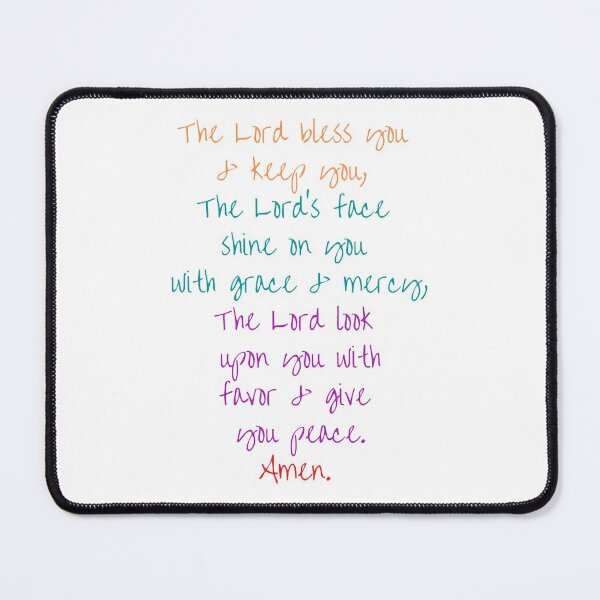 The Lord bless you
& keep you,
The Lord's face
shine on you
with grace & mercy,
The Lord look
upon you with
favor & give
you peace.
Amen.